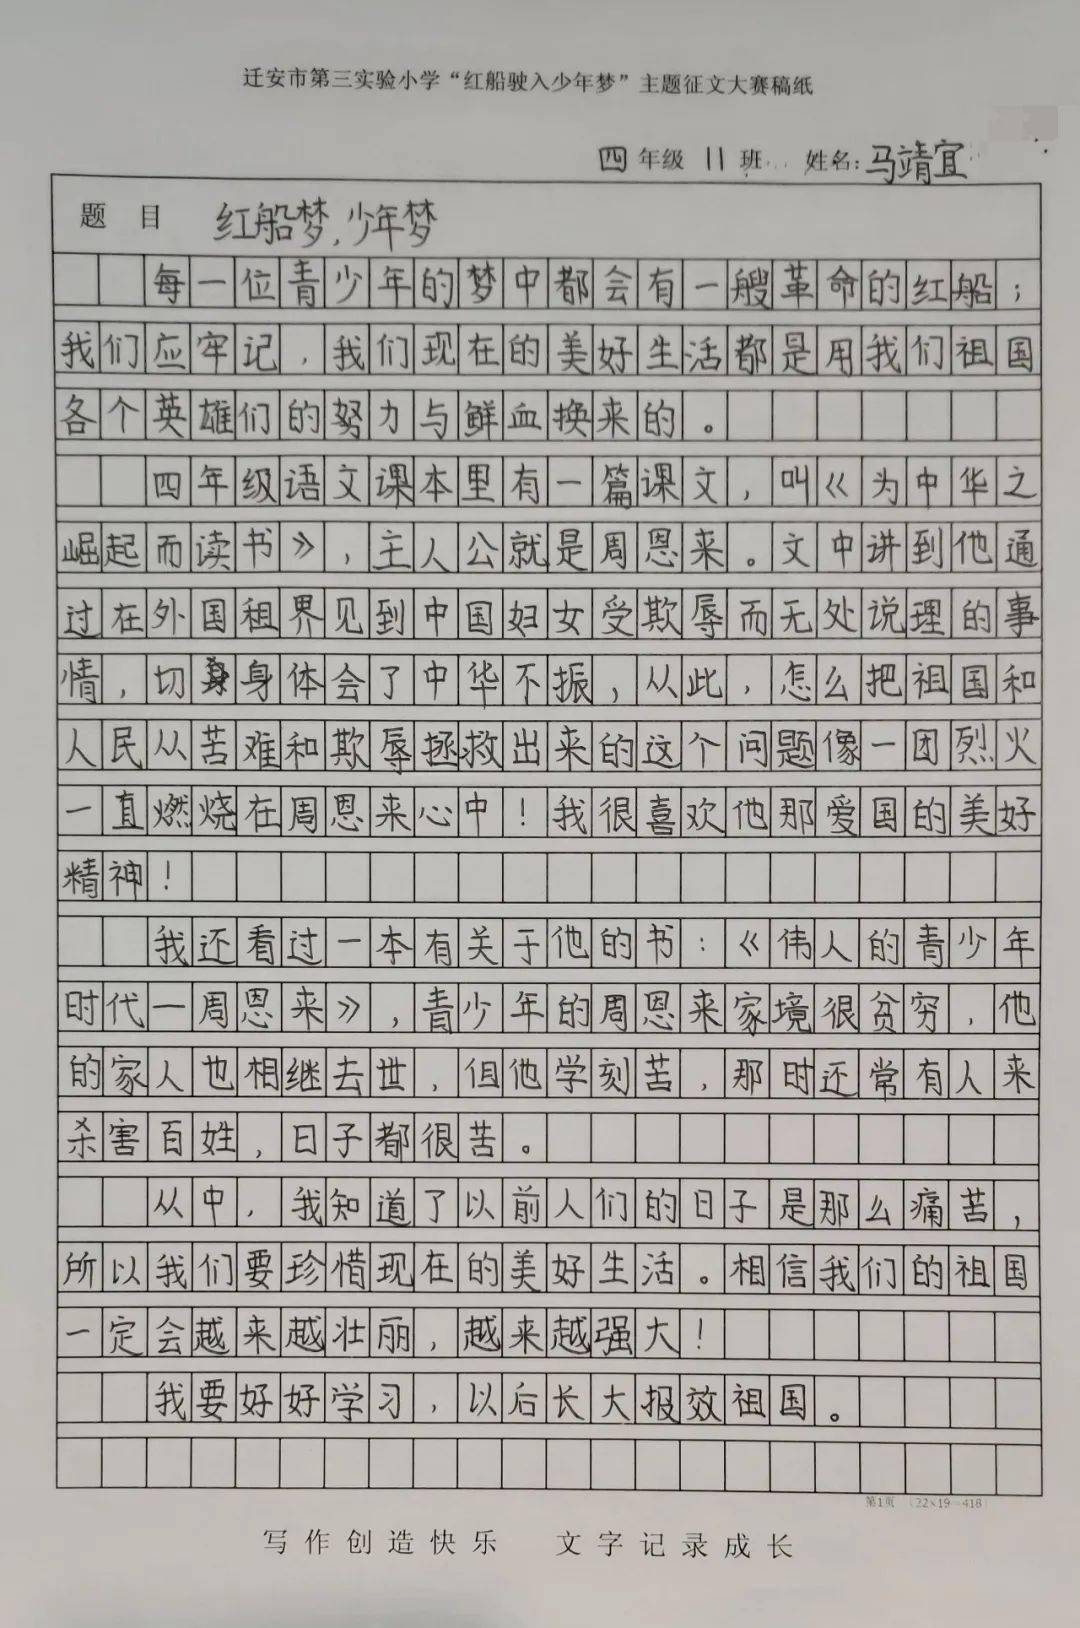 迁安市第三实验小学“红船驶入少年梦”主题征文大赛稿纸
四年级 11 班 姓名:马靖宜
题目 红船梦,少年梦
每一位青少年的梦中都会有一艘革命的红船;
我们应牢记,我们现在的美好生活都是用我们祖国
各个英雄们的努力与鲜血换来的。
四年级语文课本里有一篇课文,叫《为中华之
崛起而读书》,主人公就是周恩来。文中讲到他通
过在外国租界见到中国妇女受欺辱而无处说理的事
情,切身身体会了中华不振,从此,怎么把祖国和
人民从苦难和欺辱拯救出来的这个问题像一团烈火
一直燃烧在周恩来心中!我很喜欢他那爱国的美好
精神!
我还看过一本有关于他的书:《伟人的青少年
时代一周恩来》,青少年的周恩来家境很贫穷,他
的家人也相继去世,但他学刻苦,那时还常有人来
杀害百姓,日子都很苦。
从中,我知道了以前人们的日子是那么痛苦,
所以我们要珍惜现在的美好生活。相信我们的祖国
一定会越来越壮丽,越来越强大!
我要好好学习,以后长大报效祖国。
第1页 (22×19=418)
写作创造快乐 文字记录成长